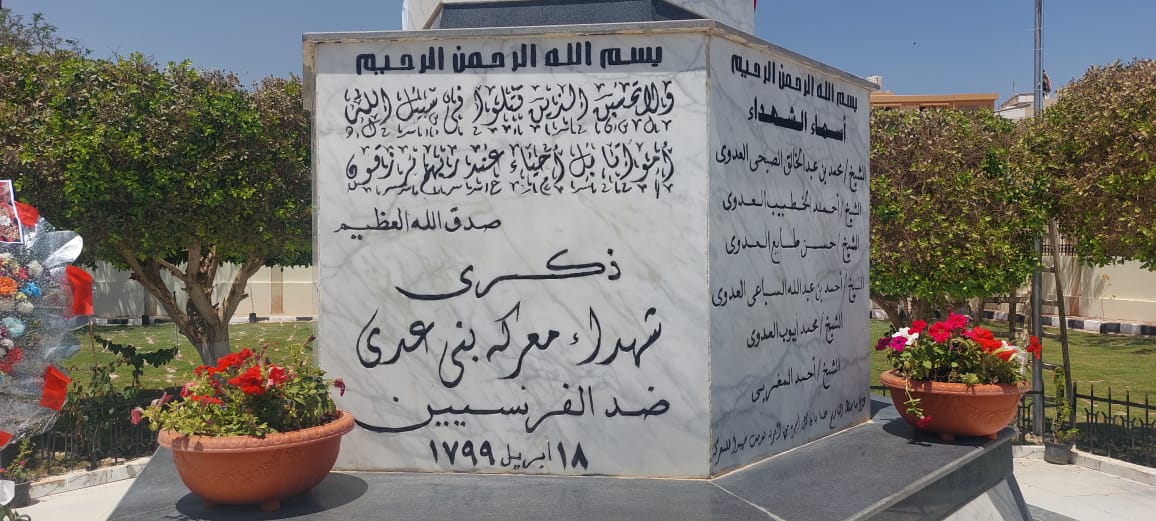 بسم الله الرحمن الرحيم
ولا تحسبن الذين قتلوا في سبيل الله
أمواتا بل أحياء عند ربهم يرزقون
صدق الله العظيم
ذكرى
شهداء معركة بنى عدى
ضد الفرنسيين
١٨ أبريل ١٧٩٩
بسم الله الرحمن الرحيم
أسماء الشهداء
الشيخ/ محمد بن عبد الخالق الصبحى العدوى
الشيخ/ أحمد الخطيب العدوى
الشيخ/ حسن طايع العدوى
الشيخ/ أحمد بن عبد الله السباعى العدوى
الشيخ/ محمد أيوب العدوى
الشيخ/ أحمد المغربى